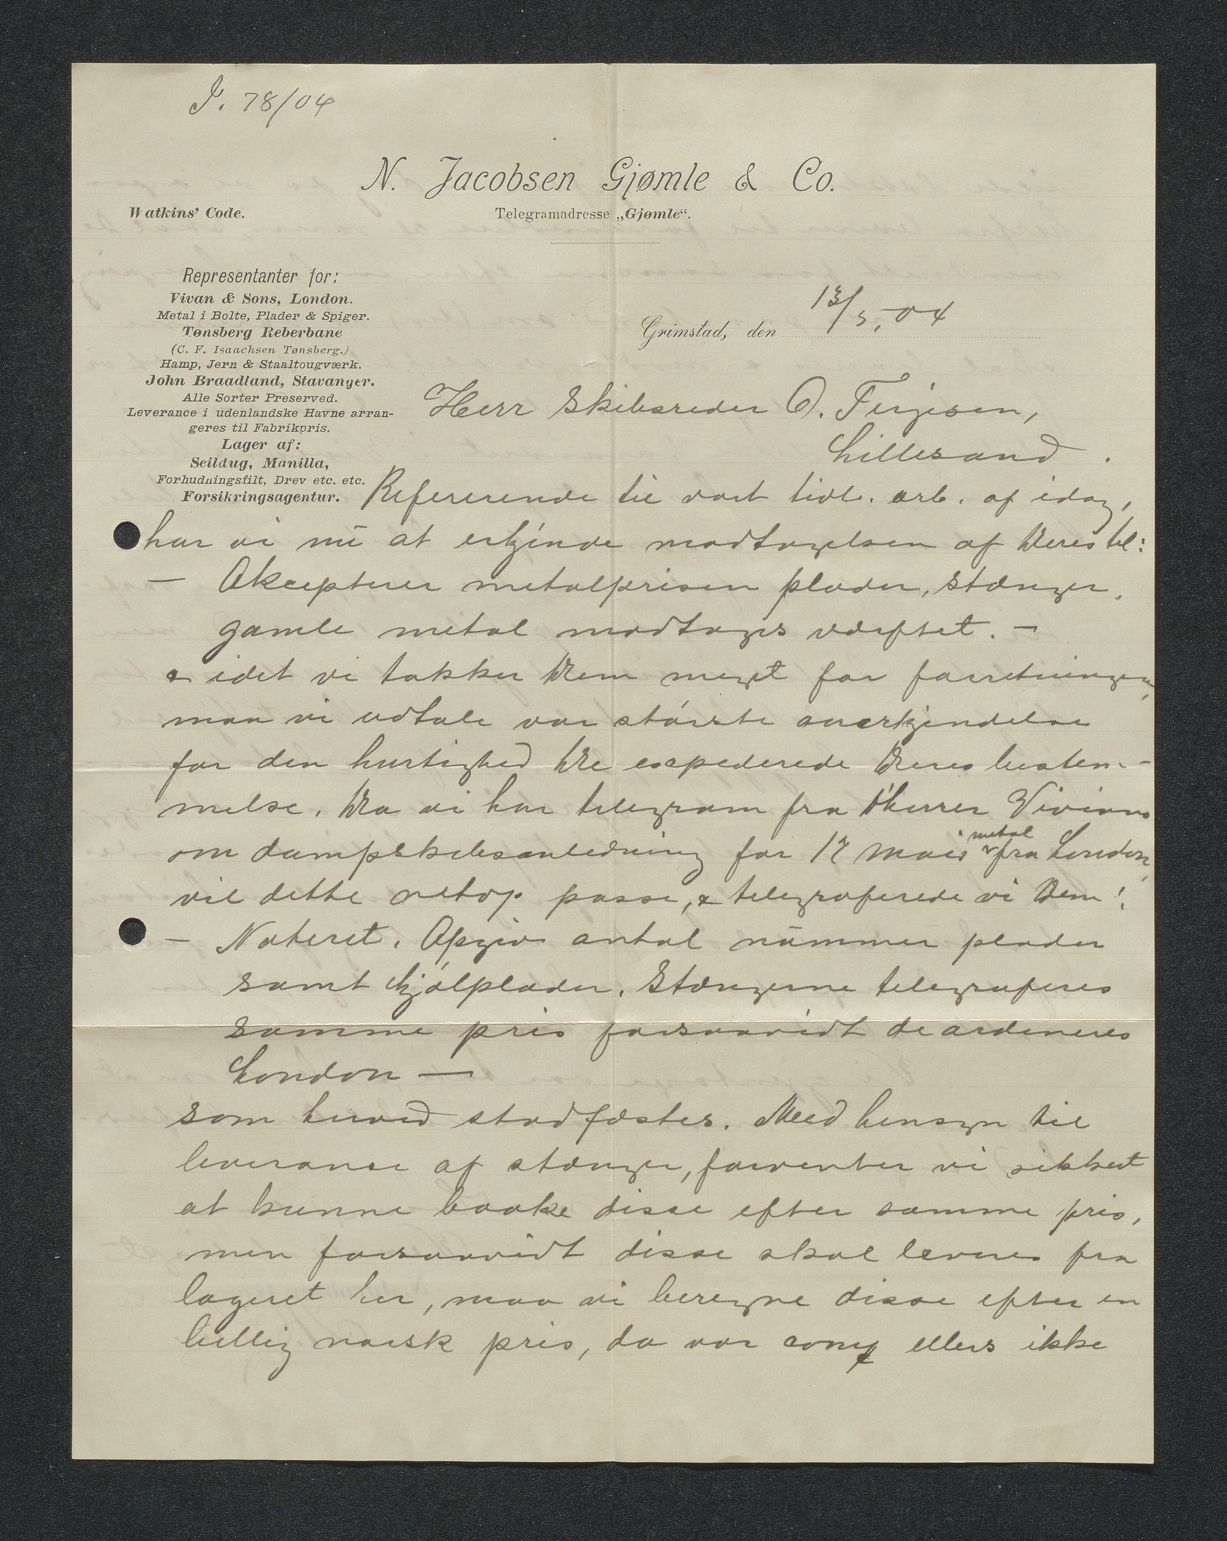 J. 78/04
N. Jacobsen Gjømle & Co.
Watkins' Code.
Telegramadresse „Gjømle“.
Representanter for:
Vivan & Sons, London.
Metal i Bolte, Plader & Spiger.
Tønsberg Reberbane
(C. F. Isaachsen Tønsberg.)
Hamp, Jern & Staaltougværk.
John Braadland, Stavanger.
Alle Sorter Preserved.
Leverance i udenlandske Havne arran-
geres til Fabrikpris.
Lager af:
Seildug, Manilla,
Forhudningsfilt, Drev etc. etc.
Forsikringsagentur.
Grimstad, den 13/5.04
Herr Skibsreder O. Terjesen,
Lillesand.
Refererende til vort tidl. arb. af idag,
har vi nu at erkjende modtagelsen af Deres tel:
— Akcepterer metalprisen plader, stænger.
gamle metal modtages værftet. —
& idet vi takker Dem meget for forretningen,
maa vi udtale vor største anerkjendelse
for den hurtighed De expederede Deres bestem-
melse. Da vi har telegram fra Herrer Vivians
om dampskibsanledning for 17 mais metal fra London,
vil dette netop passe, & telegraferede vi Dem:
— Noteret. Opgiv antal nummer plader
samt kjølplader. Stængerne telegraferes
samme pris forsaavidt de ordineres
London —
som herved stadfæstes. Med hensyn til
leverance af stænger, forventer vi sikkert
at kunne booke disse efter samme pris,
men forsaavidt disse skal leveres fra
lageret her, maa vi beregne disse efter en
billig norsk pris, da vor comp ellers ikke